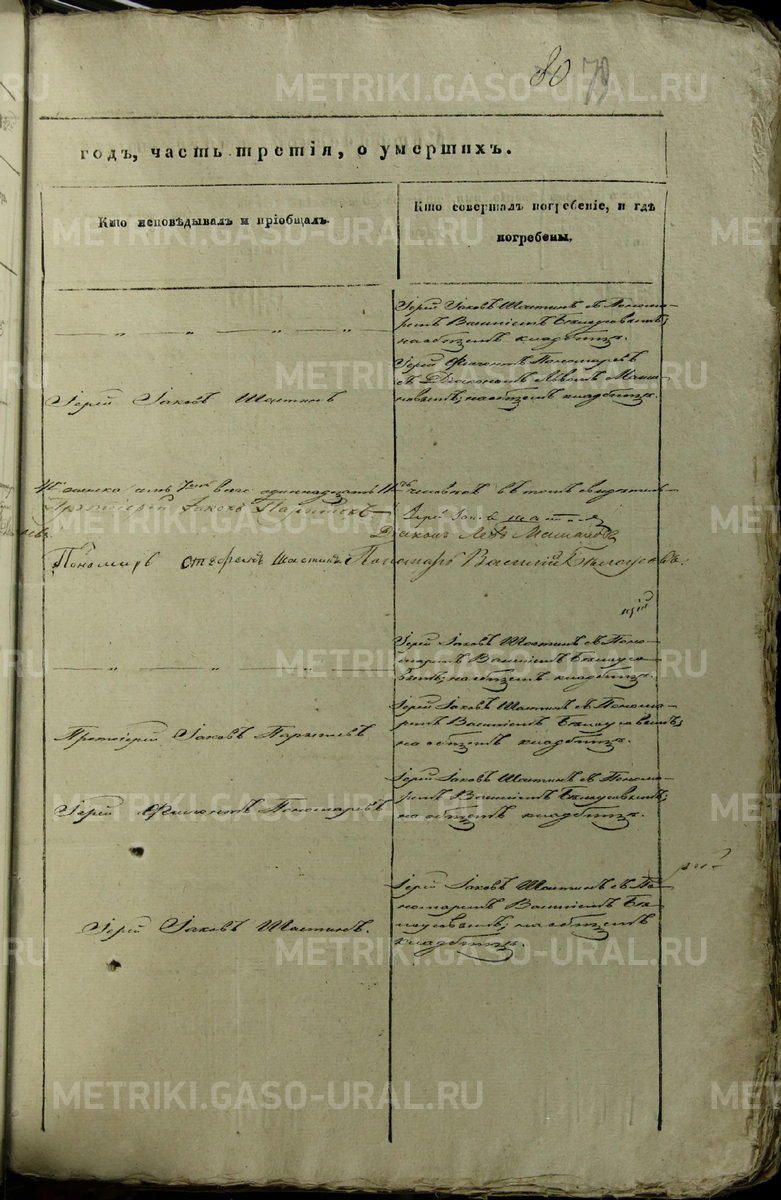 80 79
METRIKI.GASO-URAL.RU
годъ, часть третія, о умершихъ.
Кто исповѣдывалъ и пріобщалъ.
Кто совершалъ погребеніе, и гдѣ
погребены.
Іерей Іаковъ Шастинъ съ Понома-
ремъ Василіемъ Бѣлоусовымъ;
на общемъ кладбищѣ.
Іерей Іаковъ Шастинъ
Іерей Филимонъ Пономаревъ
съ Діакономъ Львомъ Маши-
новымъ; на общемъ кладбищѣ.
всего одинадцать человѣкъ въ томъ
Протоіерей Іаковъ
Іерей Іаковъ Шастинъ
Діаконъ Левъ
Пономарь Стефанъ Шастинъ Пономарь Василій Бѣлоусовъ
Іерей Іаковъ Шастинъ съ Поно-
маремъ Василіемъ Бѣлоусо-
вымъ; на общемъ кладбищѣ.
Протоіерей Іаковъ
Іерей Іаковъ Шастинъ съ Понома-
ремъ Василіемъ Бѣлоусовымъ;
на общемъ кладбищѣ.
Іерей Филимонъ Пономаревъ
Іерей Іаковъ Шастинъ съ Понома-
ремъ Василіемъ Бѣлоусовымъ;
на общемъ кладбищѣ.
Іерей Іаковъ Шастинъ.
Іерей Іаковъ Шастинъ съ По-
номаремъ Василіемъ Бѣ-
лоусовымъ; на общемъ
кладбищѣ.
METRIKI.GASO-URAL.RU